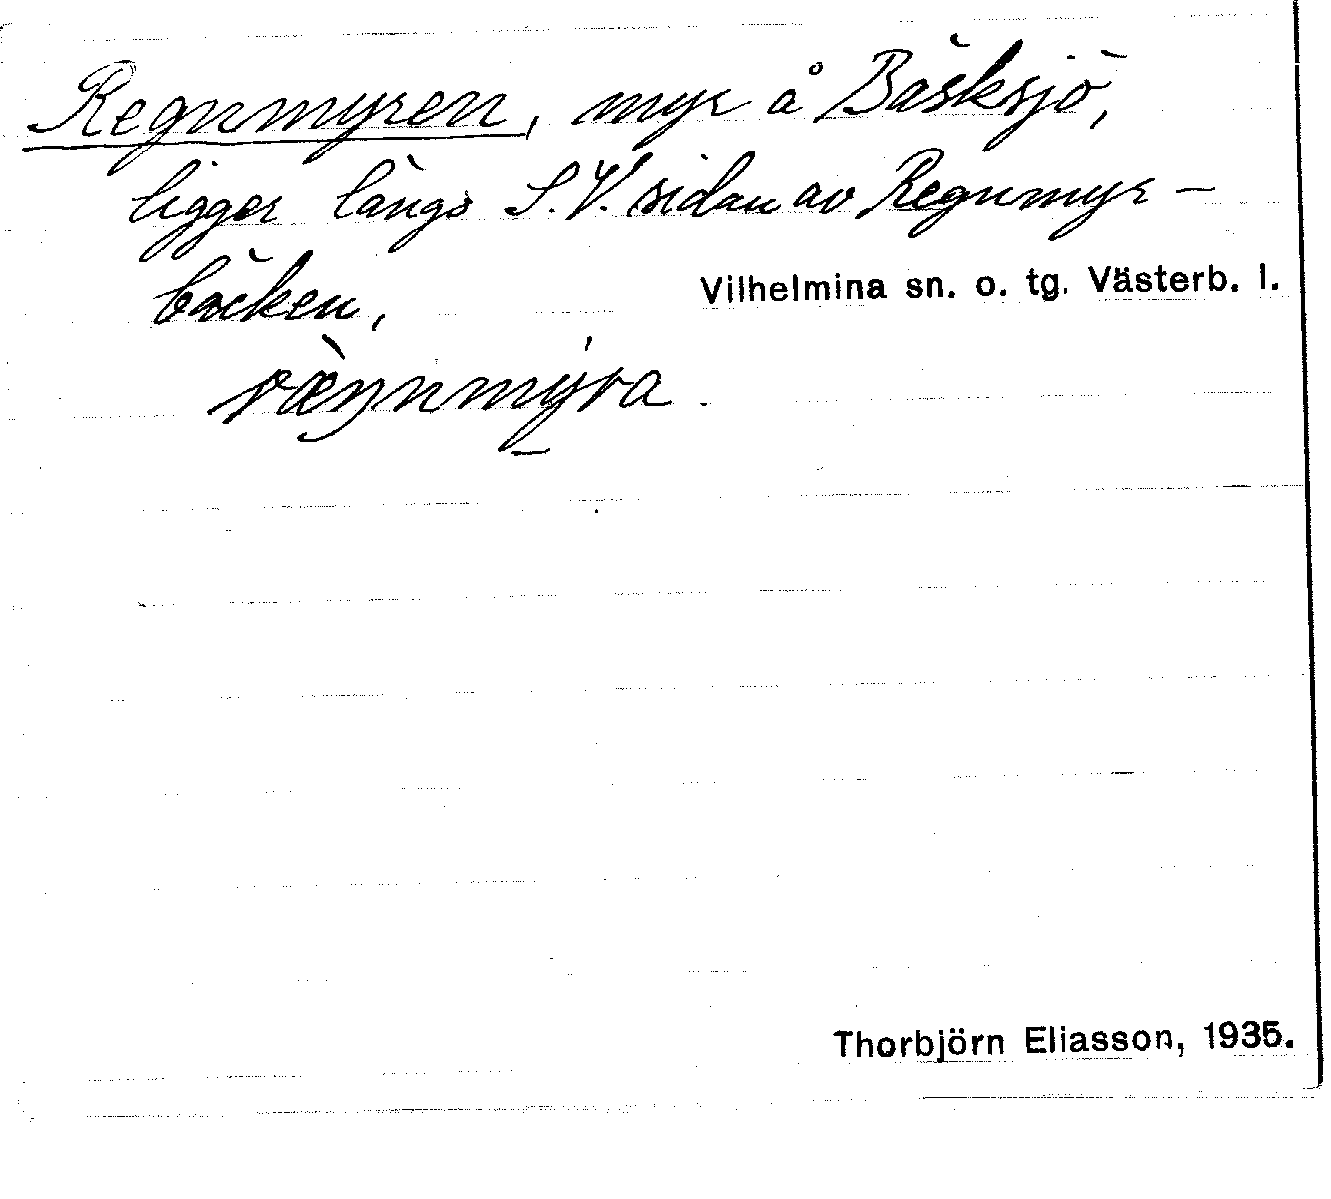 Regnmyren, myr å Bäsksjö,
ligger längs S.V. sidan av Regnmyr-
bäcken,
Vilhelmina sn. o. tg. Västerb. l.
ræ̀ŋnmýra.
Thorbjörn Eliasson, 1935.